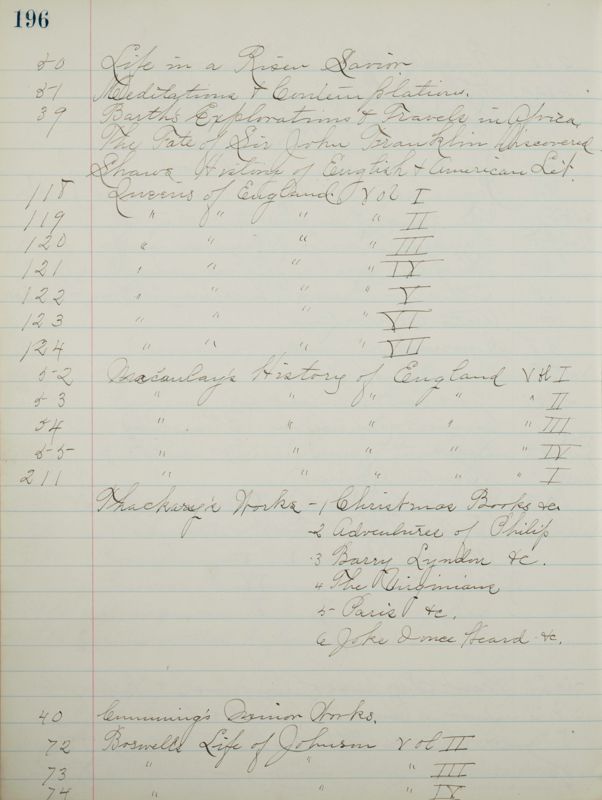 196
50 Life in a Risen Savior
51 Meditations & Contemplations.
39 Barth's Explorations & Travels in Africa
The Fate of Sir John Franklin Discovered
Shaws History of English & American Lit.
118 Queens of England Vol I
119 " " " " II
120 " " " " III
121 " " " " IV
122 " " " " V
123 " " " " VI
124 " " " " VII
52 Macaulay's History of England Vol I
53 " " " " " II
54 " " " " " III
55 " " " " IV
211 " " " " " I
Thackary's Works - 1 Christmas Books &c
2 Adventures of Philip
3 Barry Lyndon &c.
4 The Virginians
5 Paris &c.
6 Joke I once Heard &c.
40 Cumming's Minor Works.
72 Boswells Life of Johnson Vol II
73 " " " III
74 " " " IV